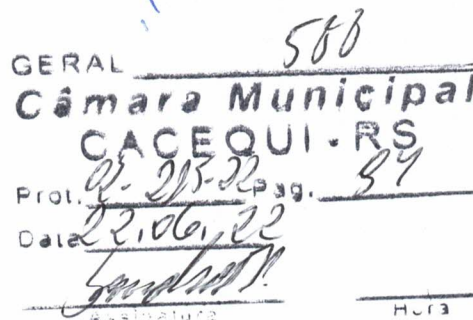 GERAL 588
Câmara Municipal
CACEQUI - RS
Prot. 02-215-22 Pag. 87
Data 22.06.22
Assinatura Hora